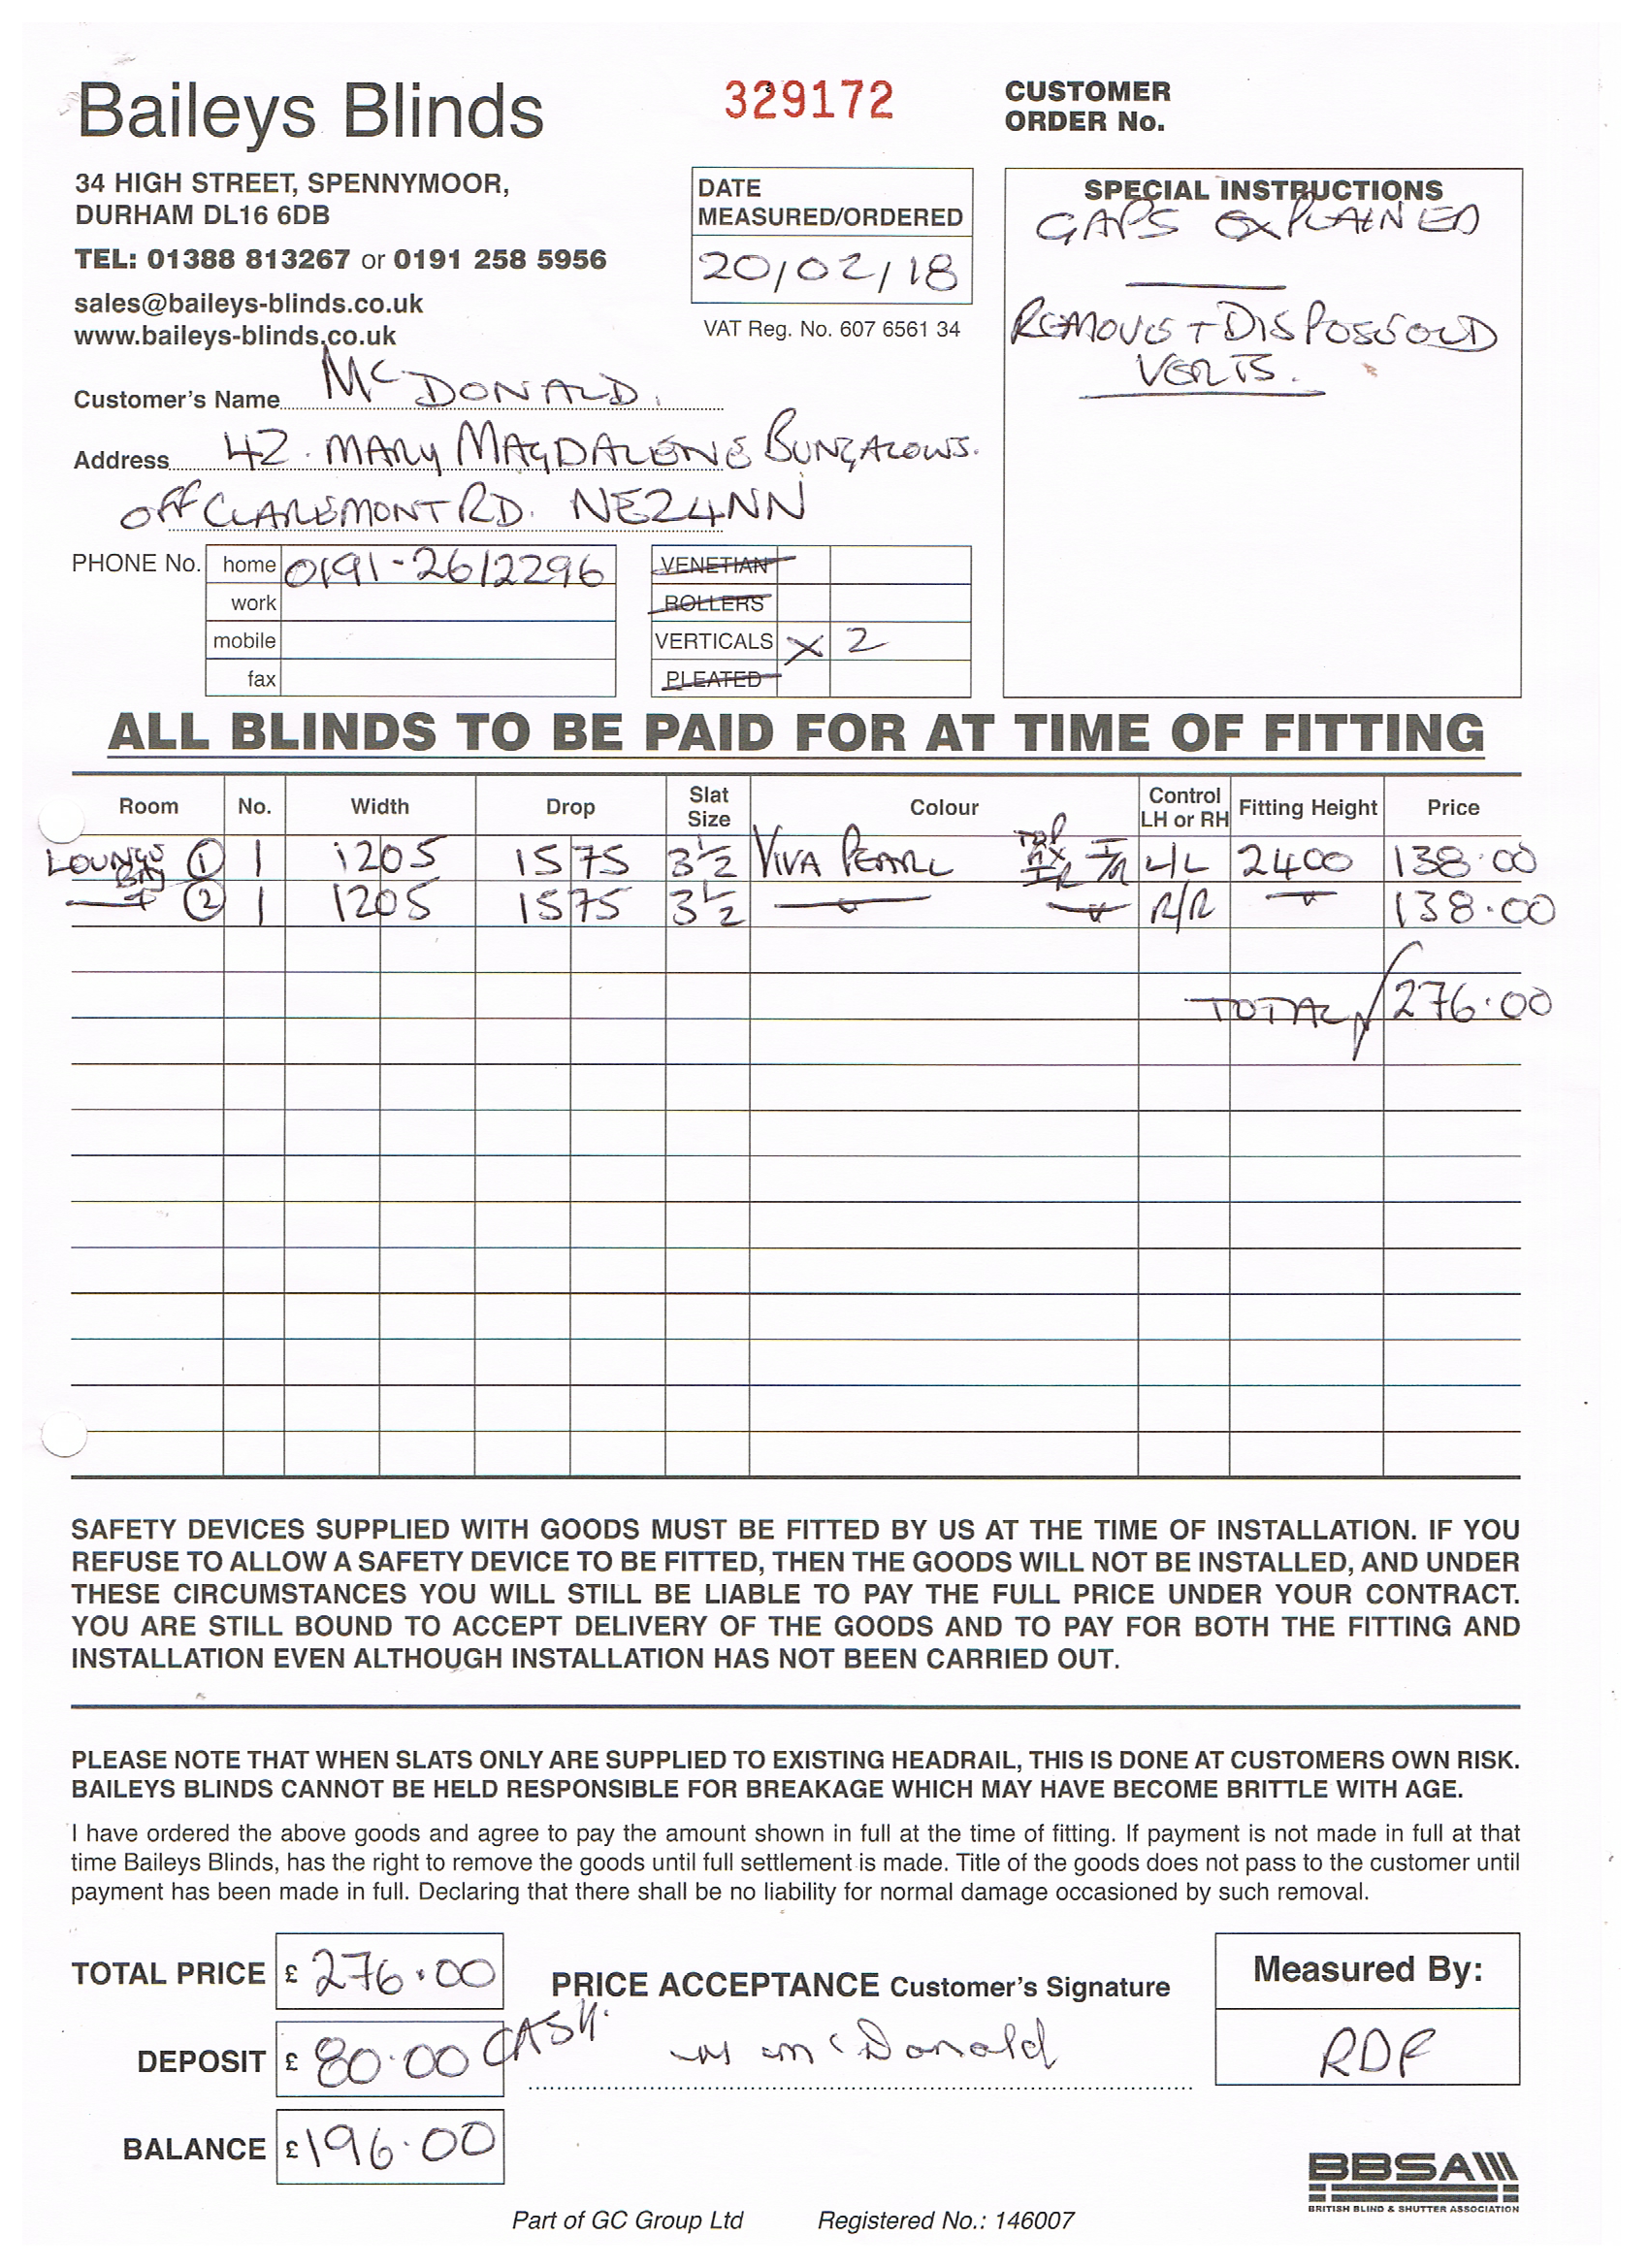 Baileys Blinds
329172
CUSTOMER
ORDER No.
34 HIGH STREET, SPENNYMOOR,
DURHAM DL16 6DB
TEL: 01388 813267 or 0191 258 5956
sales@baileys-blinds.co.uk
www.baileys-blinds.co.uk
DATE
MEASURED/ORDERED
20/02/18
VAT Reg. No. 607 6561 34
SPECIAL INSTRUCTIONS
GAPS EXPLAINED
REMOVE + DISPOSE OLD
VERTS.
Customer's Name McDONALD.
Address 42. MARY MAGDALENE BUNGALOWS.
off CLAREMONT RD. NE24NN
PHONE No. home 0191-2612296
work
mobile
fax
VENETIAN
ROLLERS
VERTICALS X 2
PLEATED
ALL BLINDS TO BE PAID FOR AT TIME OF FITTING
Room No. Width Drop Slat Size Colour Control LH or RH Fitting Height Price
LOUNGE BAY 1 1 1205 1575 3½ VIVA PEARL TOP L/L 2400 138.00
2 1 1205 1575 3½ R/R 138.00
TOTAL 276.00
SAFETY DEVICES SUPPLIED WITH GOODS MUST BE FITTED BY US AT THE TIME OF INSTALLATION. IF YOU
REFUSE TO ALLOW A SAFETY DEVICE TO BE FITTED, THEN THE GOODS WILL NOT BE INSTALLED, AND UNDER
THESE CIRCUMSTANCES YOU WILL STILL BE LIABLE TO PAY THE FULL PRICE UNDER YOUR CONTRACT.
YOU ARE STILL BOUND TO ACCEPT DELIVERY OF THE GOODS AND TO PAY FOR BOTH THE FITTING AND
INSTALLATION EVEN ALTHOUGH INSTALLATION HAS NOT BEEN CARRIED OUT.
PLEASE NOTE THAT WHEN SLATS ONLY ARE SUPPLIED TO EXISTING HEADRAIL, THIS IS DONE AT CUSTOMERS OWN RISK.
BAILEYS BLINDS CANNOT BE HELD RESPONSIBLE FOR BREAKAGE WHICH MAY HAVE BECOME BRITTLE WITH AGE.
I have ordered the above goods and agree to pay the amount shown in full at the time of fitting. If payment is not made in full at that
time Baileys Blinds, has the right to remove the goods until full settlement is made. Title of the goods does not pass to the customer until
payment has been made in full. Declaring that there shall be no liability for normal damage occasioned by such removal.
TOTAL PRICE £ 276.00
PRICE ACCEPTANCE Customer's Signature
Measured By:
DEPOSIT £ 80.00 CASH.
McDonald
RDF
BALANCE £ 196.00
BBSA
BRITISH BLIND & SHUTTER ASSOCIATION
Part of GC Group Ltd Registered No.: 146007